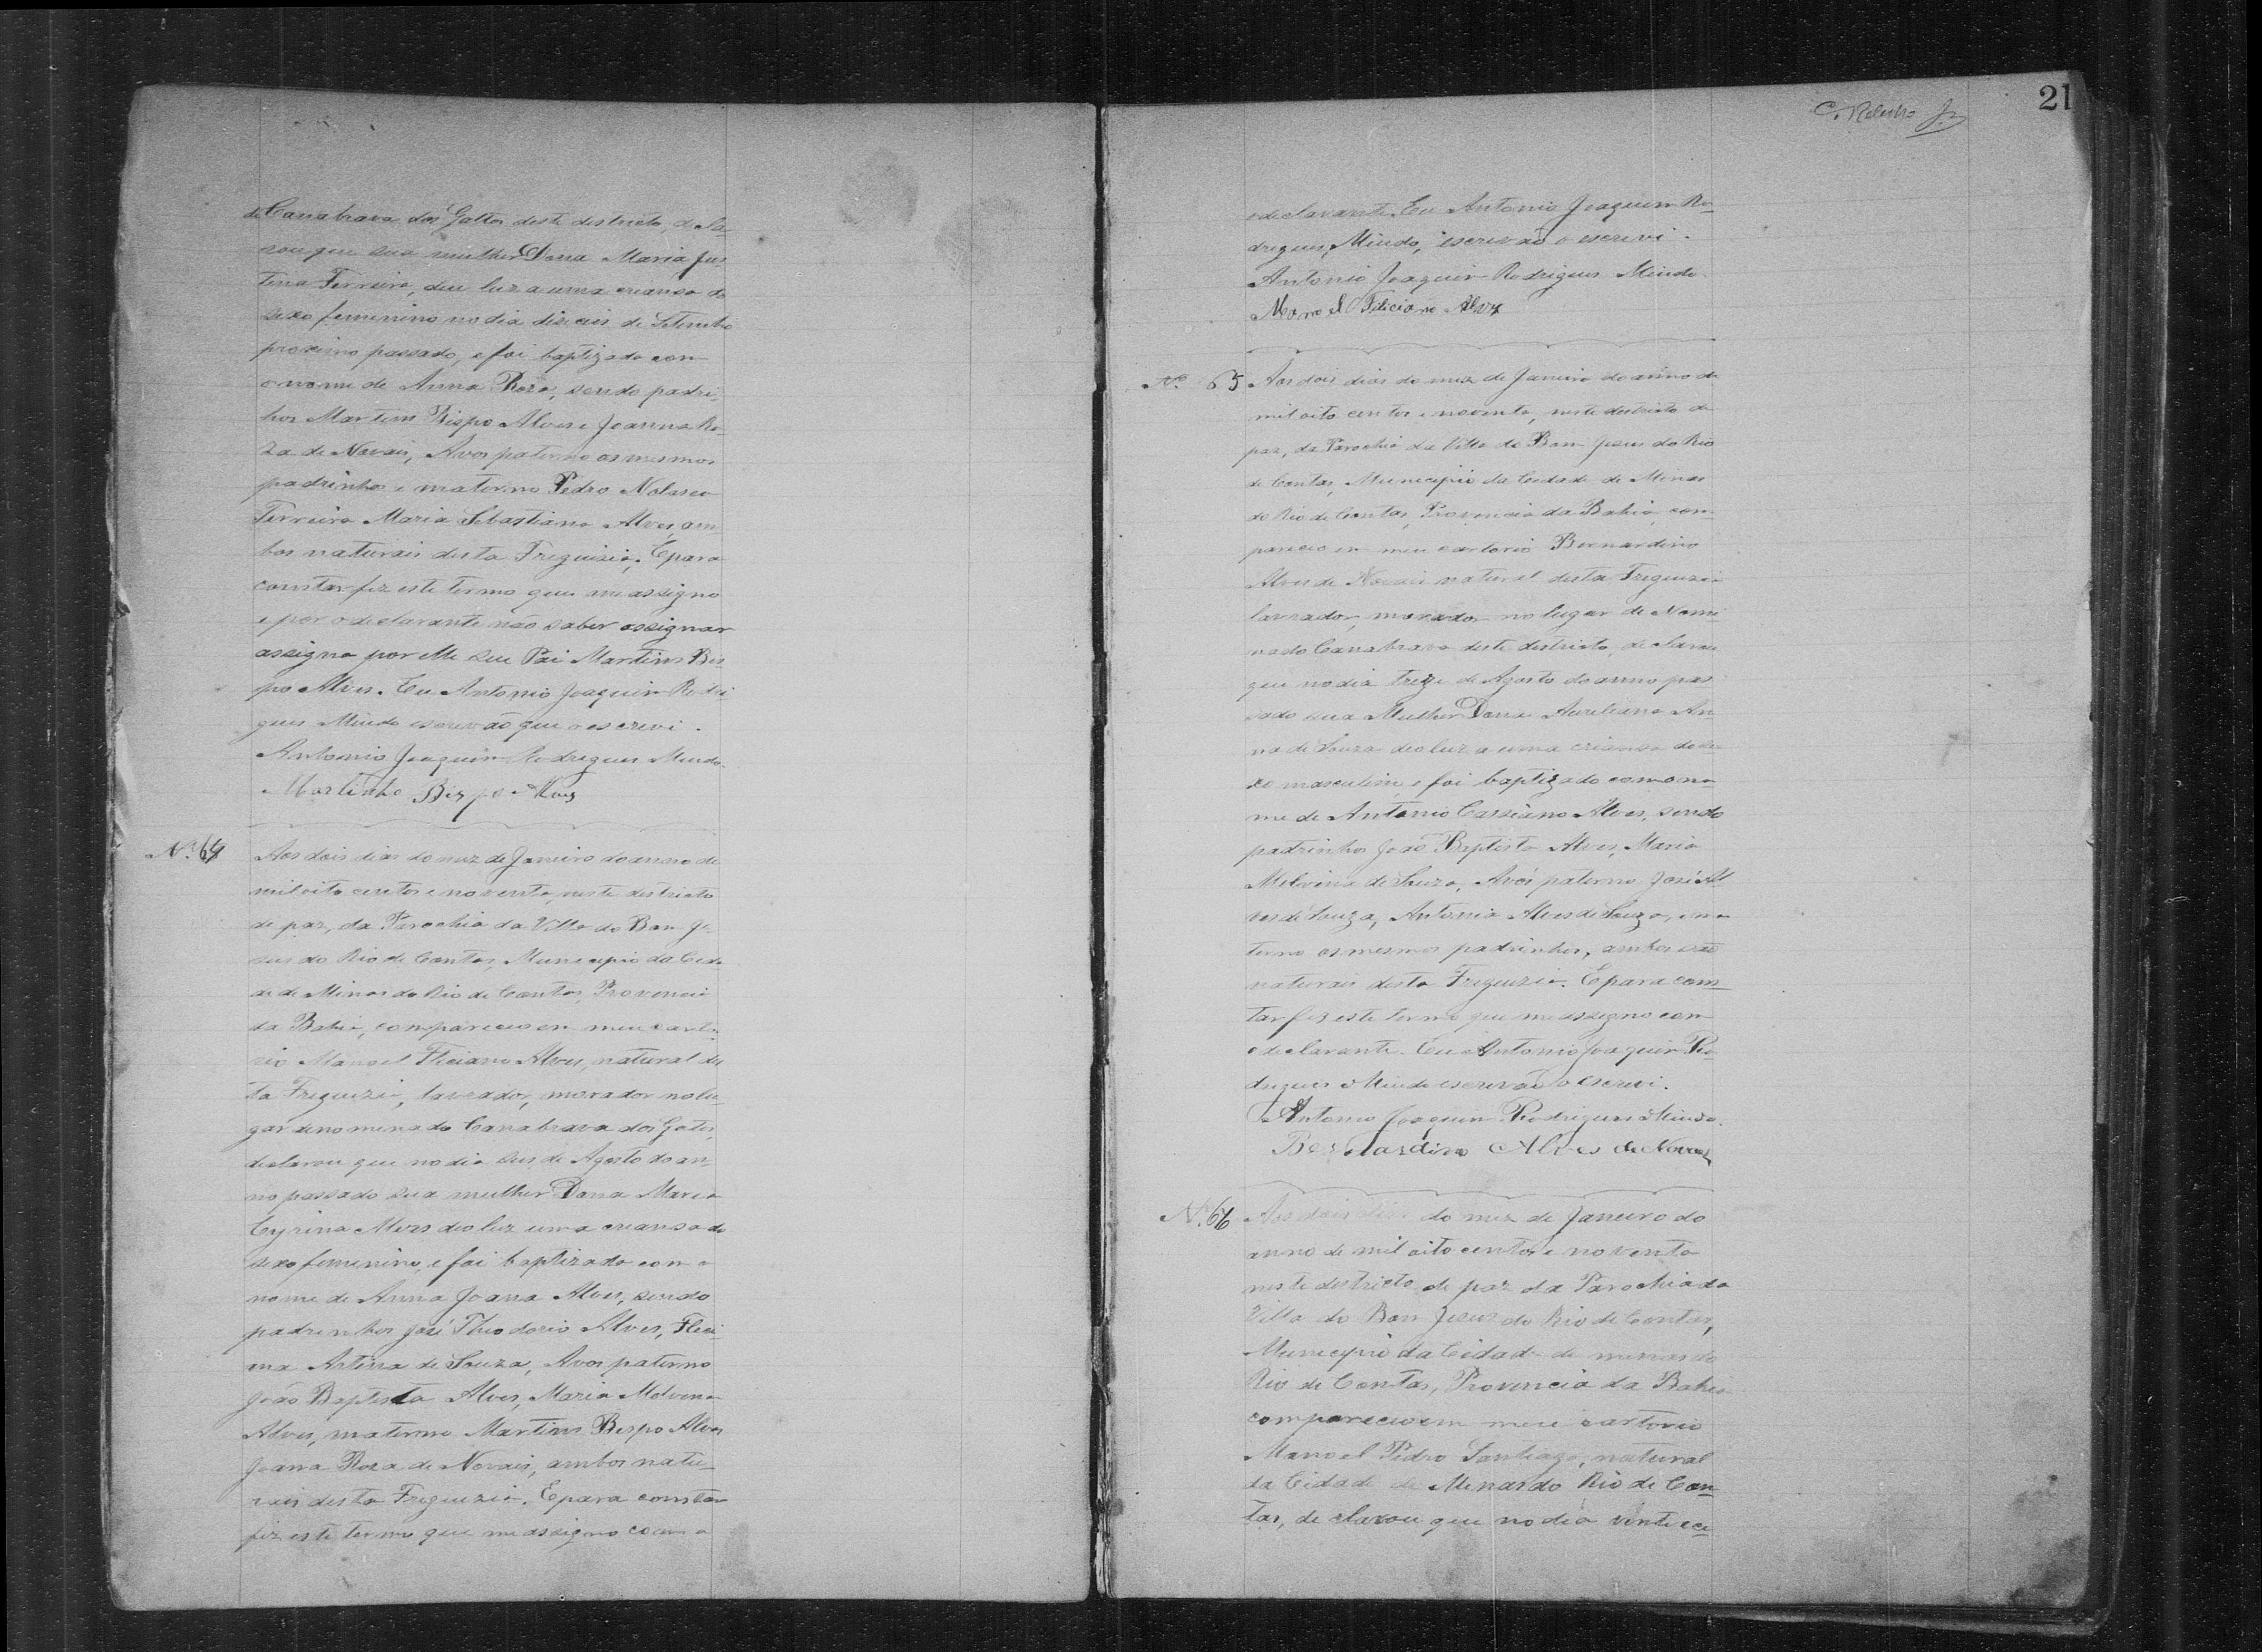 de Canabrava dos Gattos deste districto, decla-
rou que sua mulher Dona Maria Jus
tina Ferreira, deu luz a uma creansa do
sexo feminino no dia diseceis de Setembro
proximo passado, e foi baptizada com
o nome de Anna Roza, sendo padri-
hos Martins Bispo Alves e Joanna Ro-
za de Novais, Avos paterno os mesmos
padrinhos e materno Pedro Nolasco
Ferreira Maria Sebastiana Alves, am
bos naturais desta Freguizia. E para
constar fiz este termo que me assigno
e por o declarante não saber assignar
assigna por elle seu Pai Martins Bis
po Alves. Eu Antonio Joaquim Rodri
gues Mindo escrevão que o escrevi.
Antonio Joaquim Rodrigues Mindo.
Martinho Bispo Alves
Nº 64 Aos dois dias do mez de Janeiro do anno de
mil oito centos e noventa, neste districto
de paz, da Parochia da Villa do Bom Je-
sus do Rio de Contas, Municipio da Cida
de de Minas do Rio de Contas, Provincia
da Bahia, compareceo em meu carto-
rio Manoel Fliciano Alves, natural des
ta Freguizia, lavrador, morador no lu-
gar denomenado Canabrava dos Gatos,
declarou que no dia seis de Agosto do an-
no passado sua mulher Dona Maria
Cyrina Alves deo luz uma creansa do
sexo feminino, e foi baptizada com o
nome de Anna Joana Alves, sendo
padrinhos José Theodorio Alves, Fleci
ma Antina de Souza, Avos paterno
João Baptista Alves, Maria Malvina
Alves, materno Martins Bispo Alves
Joana Roza de Novais, ambos natu-
rais desta Freguizia. E para constar
fiz este termo que me assigno com o
21
o declarante. Eu Antonio Joaquim Ro-
drigues Mindo, escrevão o escrevi.
Antonio Joaquim Rodrigues Mindo
Manoel Feliciano Alvz
Nº 65 Aos dois dias do mez de Janeiro do anno de
mil oito centos e noventa, neste districto de
paz, da Parochia da Villa do Bom Jesus do Rio
de Contas, Municipio da Cidade de Minas
do Rio de Contas, Provincia da Bahia, com-
pareceo em meu cartorio Bernardino
Alves de Novais natural desta Freguizia
lavrador, morador no lugar de Nomi
nado Canabrava deste districto, declarou
que no dia treze de Agosto do anno pas
sado sua Mulher Dona Aureliana An
na de Souza deo luz a uma criansa do se
xo masculino e foi baptizado com o no
me de Antonio Cassiano Alves, sendo
padrinhos João Baptista Alves, Maria
Melvina de Souza, Avós paterno José Al
ves de Souza, Antonia Alves de Souza, e ma
terno os mesmos padrinhos, ambos são
naturais desta Freguizia. E para cons
tar fis este termo que me assigno com
o declarante. Eu Antonio Joaquim Ro-
drigues Mindo escrevão o escrevi.
Antonio Joaquim Rodrigues Mindo.
Bernardino Alves de Novais
Nº 66 Aos dois dias do mez de Janeiro do
anno de mil oito centos e noventa
neste districto de paz da Parochia da
Villa do Bom Jesus do Rio de Contas,
Municipio da Cidade de minas do
Rio de Contas, Provincia da Bahia
compareceo em meu cartorio
Manoel Pedro Santiago, natural
da Cidade de Minas do Rio de Con
tas, declarou que no dia vinte